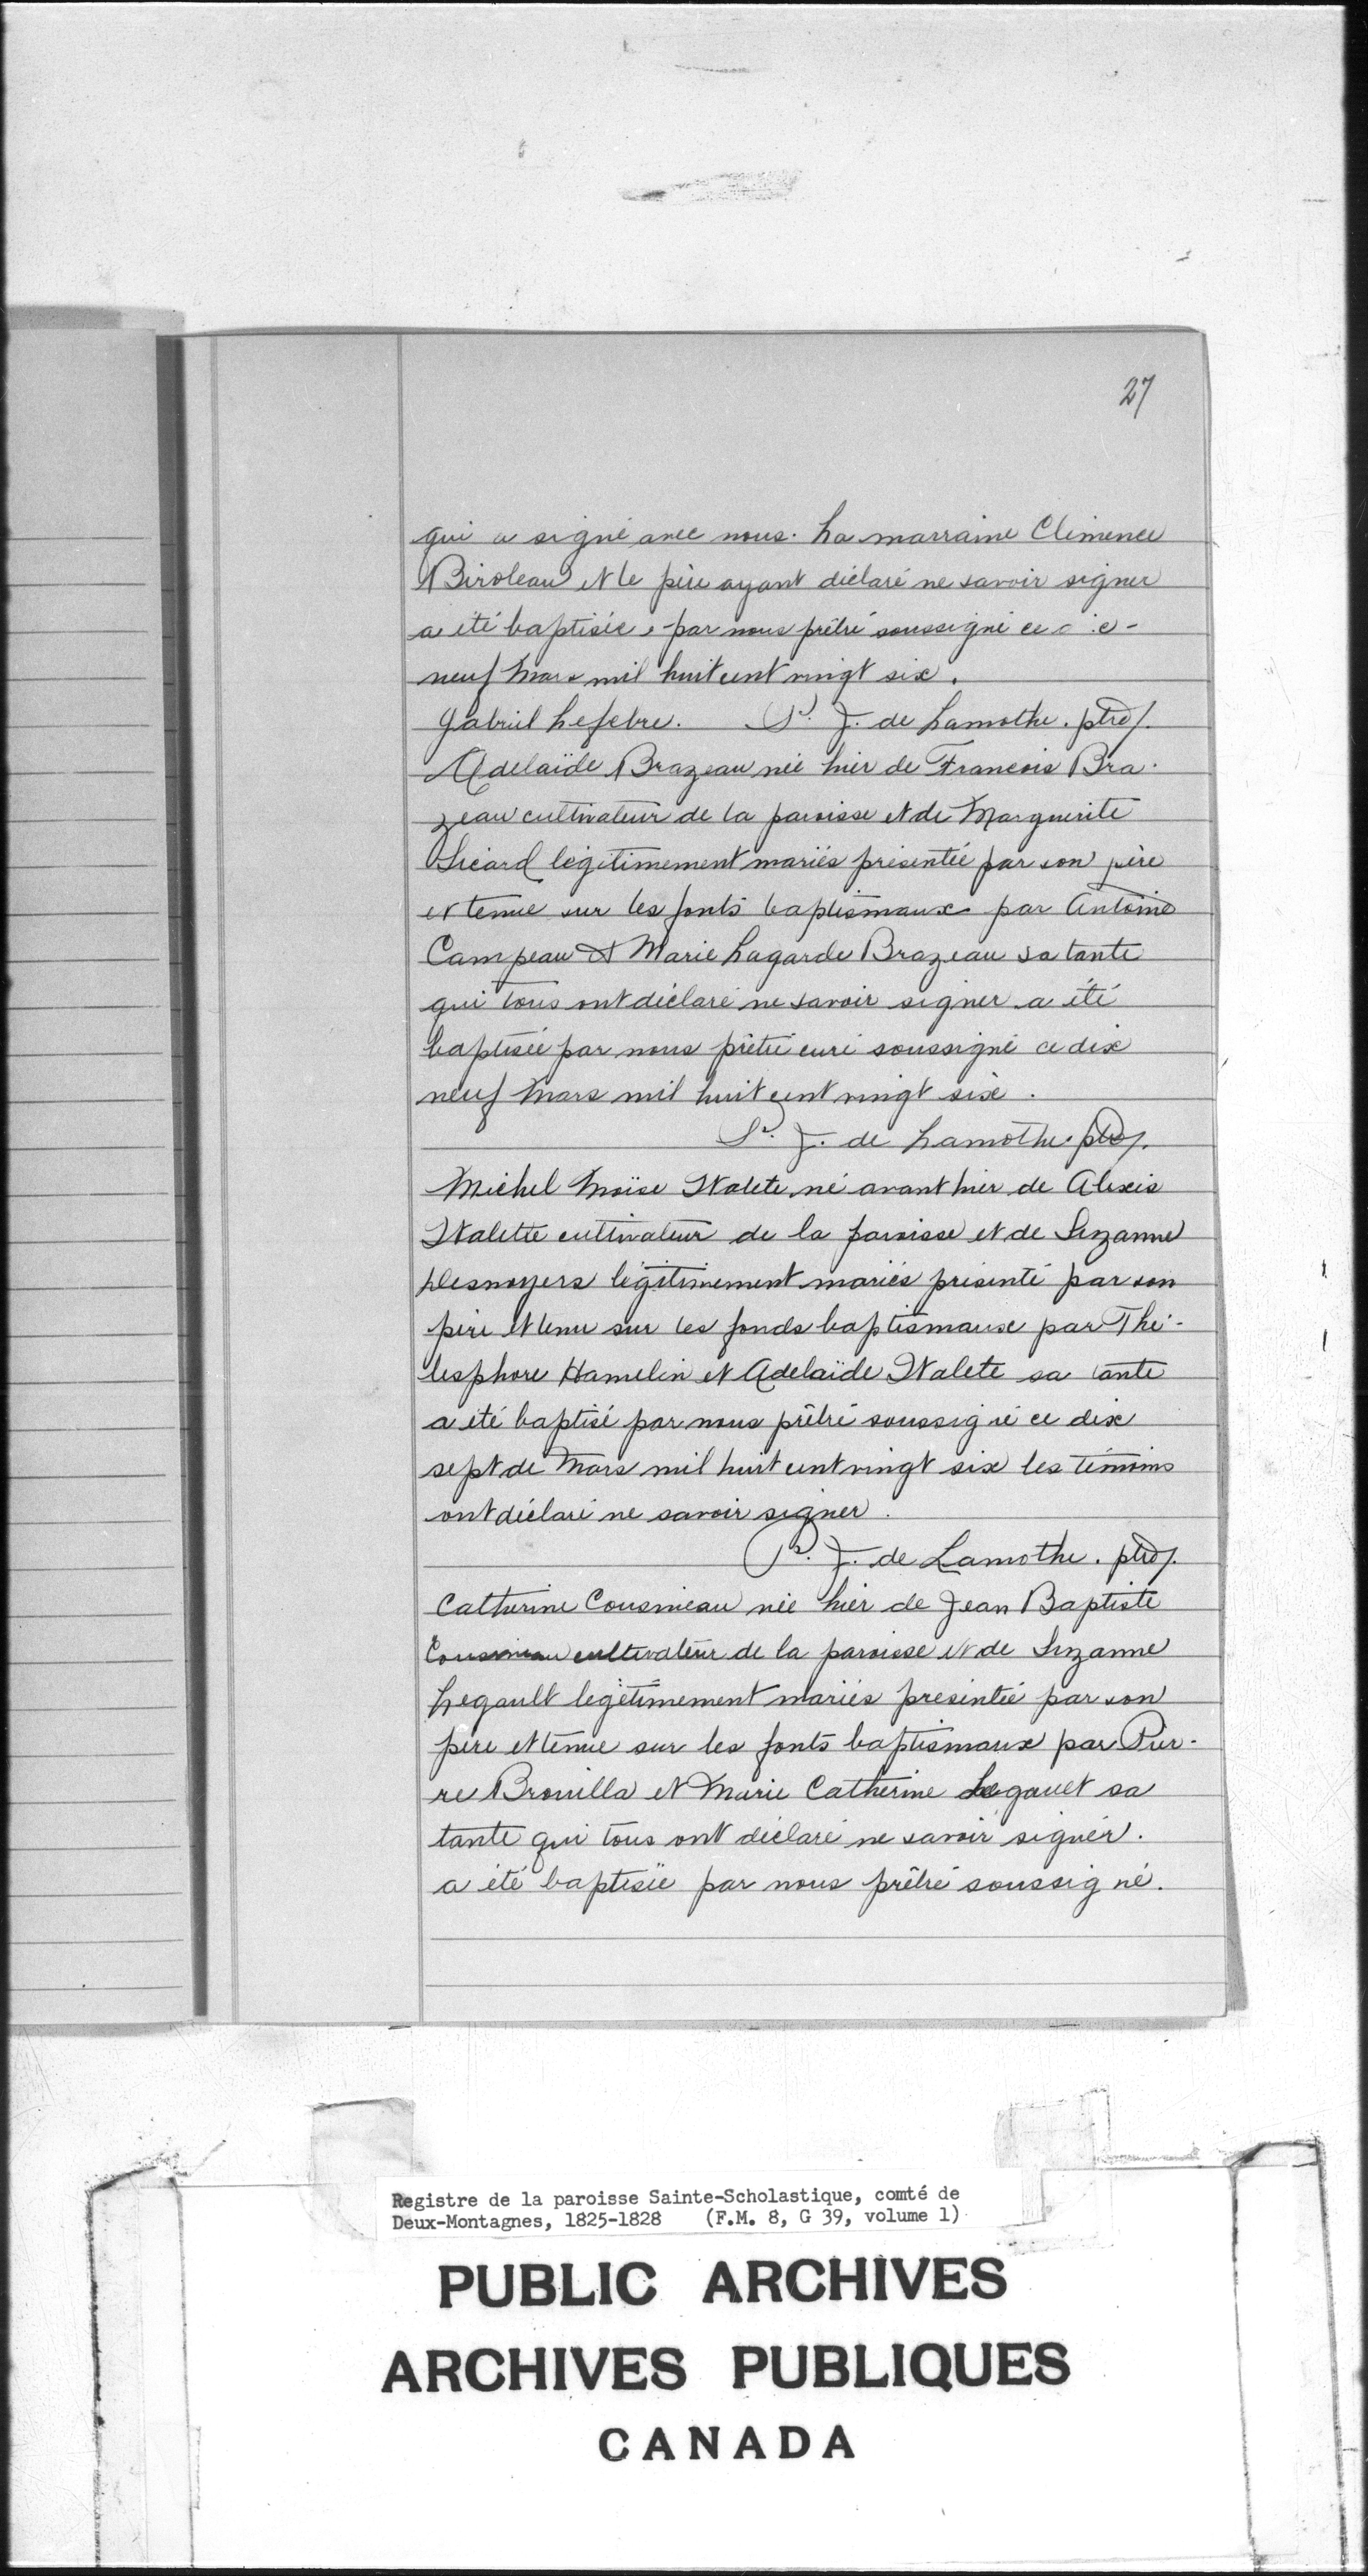 27
qui a signé avec nous. La marraine Clémence
Biroleau et le père ayant déclaré ne savoir signer
a été baptisée, par nous prêtre soussigné ce
neuf Mars mil huit cent vingt six.
Gabriel Lefebre. P. J. de Lamothe. ptre.
Adelaïde Brazeau née hier de Francois Bra-
zeau cultivateur de la paroisse et de Marguerite
Sicard légitimement mariés présentée par son père
et tenue sur les fonts baptismaux par Antoine
Campeau et Marie Lagarde Brazeau sa tante
qui tous ont déclaré ne savoir signer a été
baptisée par nous prêtre curé soussigné ce dix
neuf Mars mil huit cent vingt six.
P. J. de Lamothe. ptre.
Michel Moïse né avant hier de Alexis
cultivateur de la paroisse et de Suzanne
Desnoyers légitimement mariés présenté par son
père et tenu sur les fonds baptismaux par Thé-
lesphore Hamelin et Adelaïde sa tante
a été baptisé par nous prêtre soussigné ce dix
sept de Mars mil huit cent vingt six les témoins
ont déclaré ne savoir signer.
P. J. de Lamothe. ptre.
Catherine Cousineau née hier de Jean Baptiste
Cousineau cultivateur de la paroisse et de Suzanne
Legault légitimement mariés présentée par son
père et tenue sur les fonts baptismaux par Pier-
re Brouilla et Marie Catherine Legault sa
tante qui tous ont déclaré ne savoir signer.
a été baptisée par nous prêtre soussigné.
Registre de la paroisse Sainte-Scholastique, comté de
Deux-Montagnes, 1825-1828 (F.M. 8, G 39, volume 1)
PUBLIC ARCHIVES
ARCHIVES PUBLIQUES
CANADA